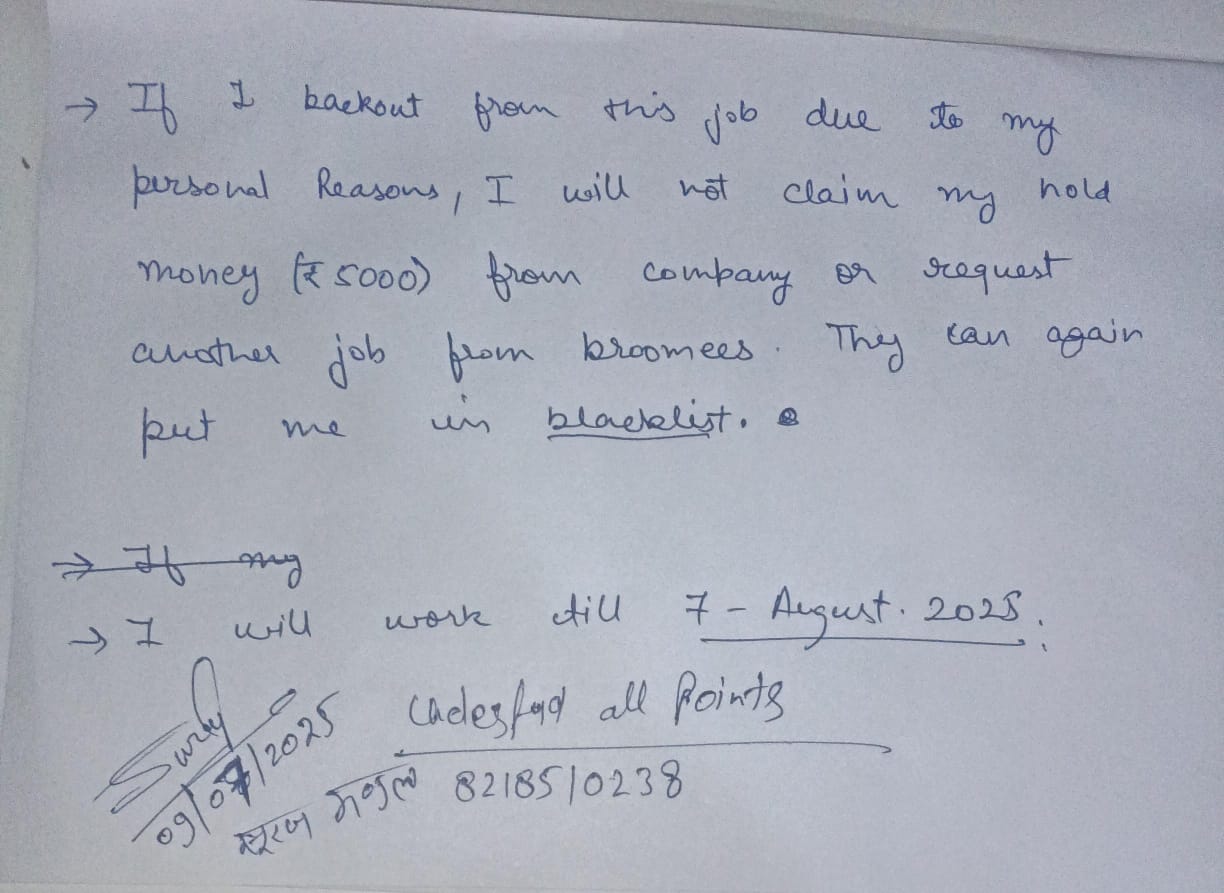 → If I backout from this job due to my
personal Reasons, I will not claim my hold
money (₹ 5000) from company or request
another job from broomees. They can again
put me in blacklist.
→ If my
→ I will work till 7 - August. 2025.
all Points
09/07/2025
सूरज मण्डल 8218510238